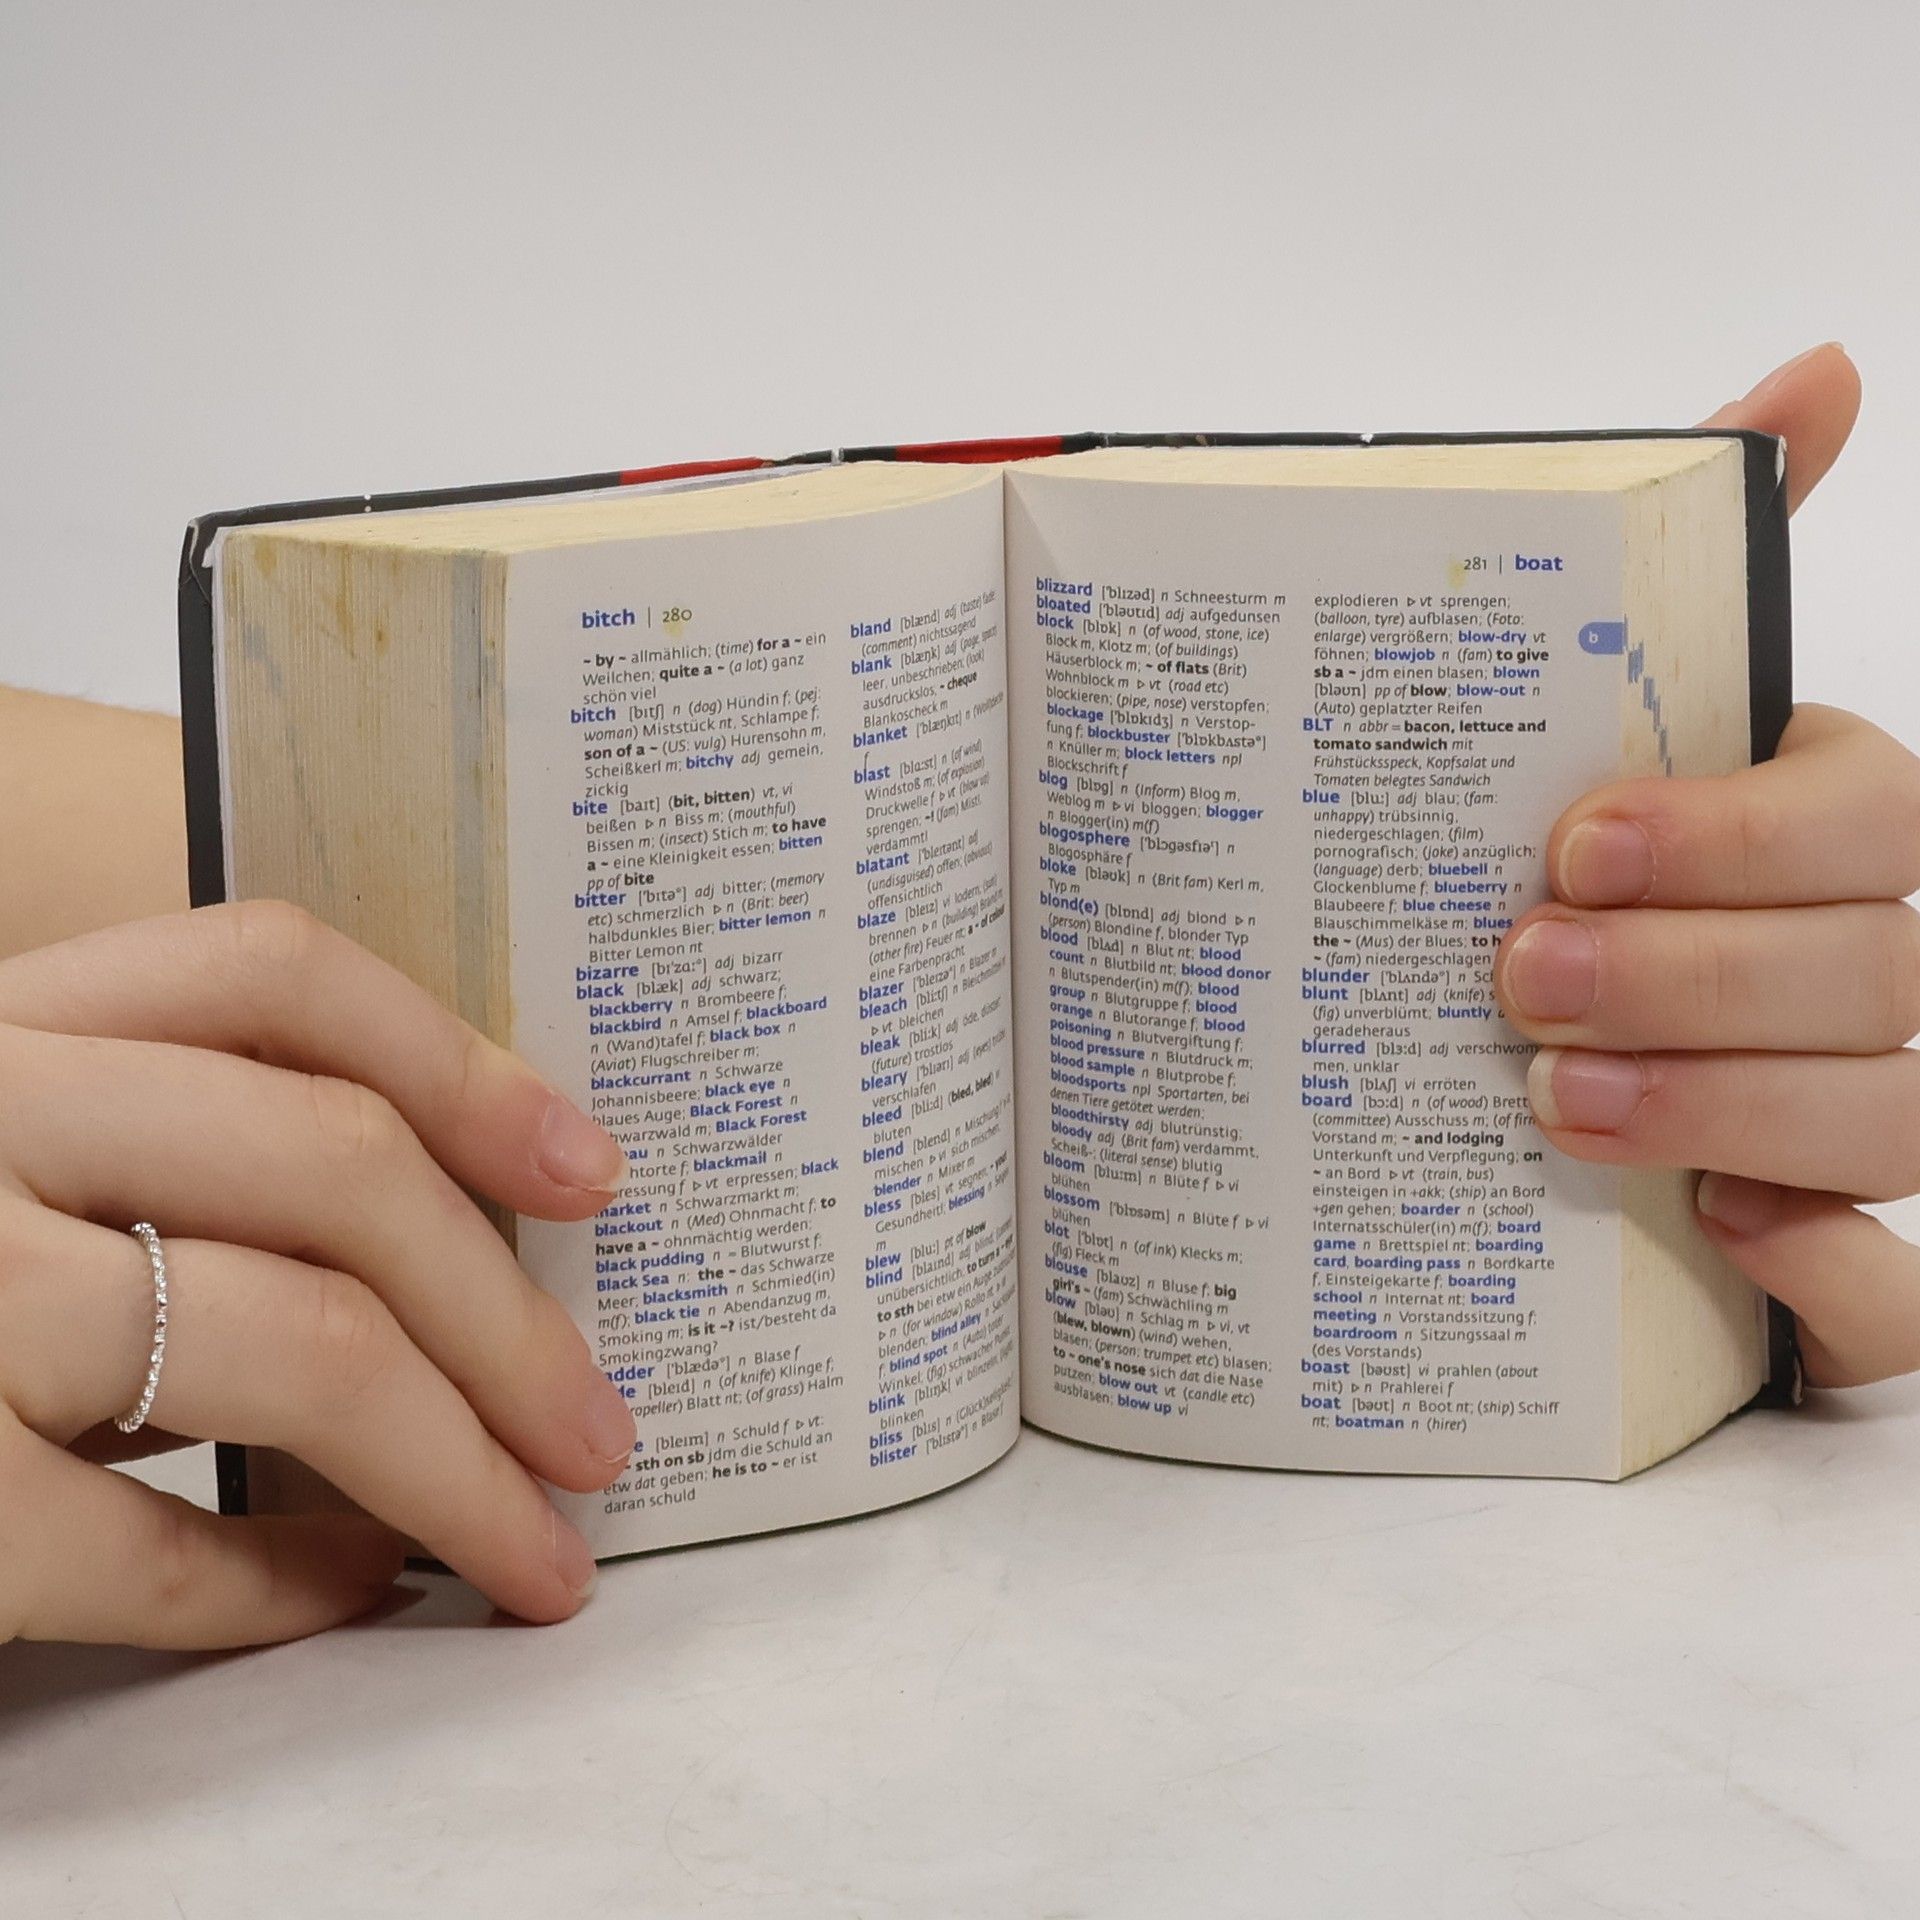 bitch | 280
~ by ~ allmählich; (time) for a ~ ein
Weilchen; quite a ~ (a lot) ganz
schön viel
bitch [bɪtʃ] n (dog) Hündin f; (pej:
woman) Miststück nt, Schlampe f;
son of a ~ (US: vulg) Hurensohn m,
Scheißkerl m; bitchy adj gemein,
zickig
bite [baɪt] (bit, bitten) vt, vi
beißen ▷ n Biss m; (mouthful)
Bissen m; (insect) Stich m; to have
a ~ eine Kleinigkeit essen; bitten
pp of bite
bitter ['bɪtəʳ] adj bitter; (memory
etc) schmerzlich ▷ n (Brit: beer)
halbdunkles Bier; bitter lemon n
Bitter Lemon nt
bizarre [bɪ'zɑ:ʳ] adj bizarr
black [blæk] adj schwarz;
blackberry n Brombeere f;
blackbird n Amsel f; blackboard
n (Wand)tafel f; black box n
(Aviat) Flugschreiber m;
blackcurrant n Schwarze
Johannisbeere; black eye n
blaues Auge; Black Forest n
hwarzwald m; Black Forest
au n Schwarzwälder
htorte f; blackmail n
ressung f ▷ vt erpressen; black
market n Schwarzmarkt m;
blackout n (Med) Ohnmacht f; to
have a ~ ohnmächtig werden;
black pudding n ≈ Blutwurst f;
Black Sea n: the ~ das Schwarze
Meer; blacksmith n Schmied(in)
m(f); black tie n Abendanzug m,
Smoking m; is it ~? ist/besteht da
Smokingzwang?
adder ['blædəʳ] n Blase f
de [bleɪd] n (of knife) Klinge f;
ropeller) Blatt nt; (of grass) Halm
e [bleɪm] n Schuld f ▷ vt:
~ sth on sb jdm die Schuld an
etw dat geben; he is to ~ er ist
daran schuld
bland [blænd] adj (taste) fade
(comment) nichtssagend
blank [blæŋk] adj (page, space)
leer, unbeschrieben; (look)
ausdruckslos; ~ cheque
Blankoscheck m
blanket ['blæŋkɪt] n (Woll)decke
f
blast [blɑ:st] n (of wind)
Windstoß m; (of explosion)
Druckwelle f ▷ vt (blow up)
sprengen; ~! (fam) Mist!,
verdammt!
blatant ['bleɪtənt] adj
(undisguised) offen; (obvious)
offensichtlich
blaze [bleɪz] vi lodern; (sun)
brennen ▷ n (building) Brand m;
(other fire) Feuer nt; a ~ of colour
eine Farbenpracht
blazer ['bleɪzəʳ] n Blazer m
bleach [bli:tʃ] n Bleichmittel nt
▷ vt bleichen
bleak [bli:k] adj öde, düster;
(future) trostlos
bleary ['blɪərɪ] adj (eyes) trübe,
verschlafen
bleed [bli:d] (bled, bled) vi
bluten
blend [blend] n Mischung f ▷ vt
mischen ▷ vi sich mischen;
blender n Mixer m
bless [bles] vt segnen; ~ you!
Gesundheit!; blessing n Segen
m
blew [blu:] pt of blow
blind [blaɪnd] adj blind; (corner)
unübersichtlich; to turn a ~ eye
to sth bei etw ein Auge zudrücken
▷ n (for window) Rollo nt ▷ vt
blenden; blind alley n Sackgasse
f; blind spot n (Auto) toter
Winkel; (fig) schwacher Punkt
blink [blɪŋk] vi blinzeln; (light)
blinken
bliss [blɪs] n (Glück)seligkeit f
blister ['blɪstəʳ] n Blase f
281 | boat
blizzard ['blɪzəd] n Schneesturm m
bloated ['bləʊtɪd] adj aufgedunsen
block [blɒk] n (of wood, stone, ice)
Block m, Klotz m; (of buildings)
Häuserblock m; ~ of flats (Brit)
Wohnblock m ▷ vt (road etc)
blockieren; (pipe, nose) verstopfen;
blockage ['blɒkɪdʒ] n Verstop-
fung f; blockbuster ['blɒkbʌstəʳ]
n Knüller m; block letters npl
Blockschrift f
blog [blɒg] n (Inform) Blog m,
Weblog m ▷ vi bloggen; blogger
n Blogger(in) m(f)
blogosphere ['blɔgəsfɪəʳ] n
Blogosphäre f
bloke [bləʊk] n (Brit fam) Kerl m,
Typ m
blond(e) [blɒnd] adj blond ▷ n
(person) Blondine f, blonder Typ
blood [blʌd] n Blut nt; blood
count n Blutbild nt; blood donor
n Blutspender(in) m(f); blood
group n Blutgruppe f; blood
orange n Blutorange f; blood
poisoning n Blutvergiftung f;
blood pressure n Blutdruck m;
blood sample n Blutprobe f;
bloodsports npl Sportarten, bei
denen Tiere getötet werden;
bloodthirsty adj blutrünstig;
bloody adj (Brit fam) verdammt,
Scheiß-; (literal sense) blutig
bloom [blu:m] n Blüte f ▷ vi
blühen
blossom ['blɒsəm] n Blüte f ▷ vi
blühen
blot ['blɒt] n (of ink) Klecks m;
(fig) Fleck m
blouse [blaʊz] n Bluse f; big
girl's ~ (fam) Schwächling m
blow [bləʊ] n Schlag m ▷ vi, vt
(blew, blown) (wind) wehen,
blasen; (person: trumpet etc) blasen;
to ~ one's nose sich dat die Nase
putzen; blow out vt (candle etc)
ausblasen; blow up vi
explodieren ▷ vt sprengen;
(balloon, tyre) aufblasen; (Foto:
enlarge) vergrößern; blow-dry vt
föhnen; blowjob n (fam) to give
sb a ~ jdm einen blasen; blown
[bləʊn] pp of blow; blow-out n
(Auto) geplatzter Reifen
BLT n abbr = bacon, lettuce and
tomato sandwich mit
Frühstücksspeck, Kopfsalat und
Tomaten belegtes Sandwich
blue [blu:] adj blau; (fam:
unhappy) trübsinnig,
niedergeschlagen; (film)
pornografisch; (joke) anzüglich;
(language) derb; bluebell n
Glockenblume f; blueberry n
Blaubeere f; blue cheese n
Blauschimmelkäse m; blues
the ~ (Mus) der Blues; to h
~ (fam) niedergeschlagen
blunder ['blʌndəʳ] n Sc
blunt [blʌnt] adj (knife) s
(fig) unverblümt; bluntly a
geradeheraus
blurred [blɜ:d] adj verschwom
men, unklar
blush [blʌʃ] vi erröten
board [bɔ:d] n (of wood) Brett
(committee) Ausschuss m; (of firm
Vorstand m; ~ and lodging
Unterkunft und Verpflegung; on
~ an Bord ▷ vt (train, bus)
einsteigen in +akk; (ship) an Bord
+gen gehen; boarder n (school)
Internatsschüler(in) m(f); board
game n Brettspiel nt; boarding
card, boarding pass n Bordkarte
f, Einsteigekarte f; boarding
school n Internat nt; board
meeting n Vorstandssitzung f;
boardroom n Sitzungssaal m
(des Vorstands)
boast [bəʊst] vi prahlen (about
mit) ▷ n Prahlerei f
boat [bəʊt] n Boot nt; (ship) Schiff
nt; boatman n (hirer)
b